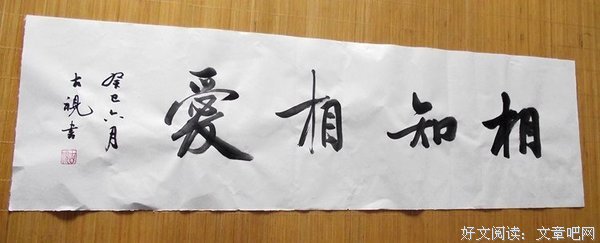 相知相愛
癸巳六月
古視書
好文阅读：文章吧网